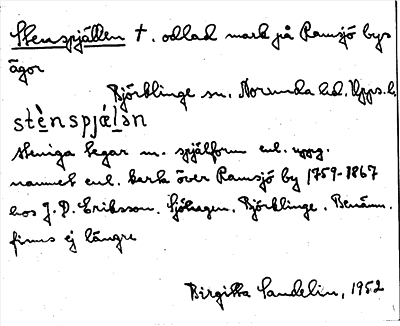 Stenspjällen †. odlad mark på Ramsjö bys
ägor
Björklinge sn. Norunda hd. Upps. l.
stè̱nspjæḻən
steniga tegar m. spjälform enl. uppg.
namnet enl. karta över Ramsjö by 1759-1867
hos J. D. Eriksson. Sjöhagen. Björklinge. Benämn.
finns ej längre
Birgitta Sandelin, 1952